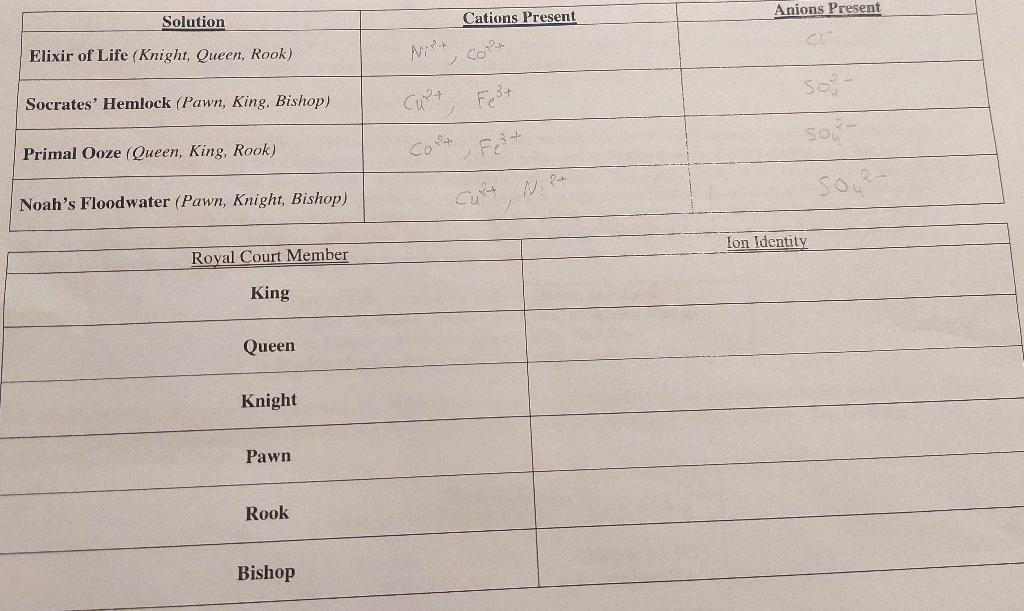 Solution Cations Present Anions Present
Elixir of Life (Knight, Queen, Rook) Ni²⁺, Co²⁺ Cl⁻
Socrates' Hemlock (Pawn, King, Bishop) Cu²⁺, Fe³⁺ SO₄²⁻
Primal Ooze (Queen, King, Rook) Co²⁺, Fe³⁺ SO₄²⁻
Noah's Floodwater (Pawn, Knight, Bishop) Cu²⁺, Ni²⁺ SO₄²⁻
Royal Court Member Ion Identity
King
Queen
Knight
Pawn
Rook
Bishop